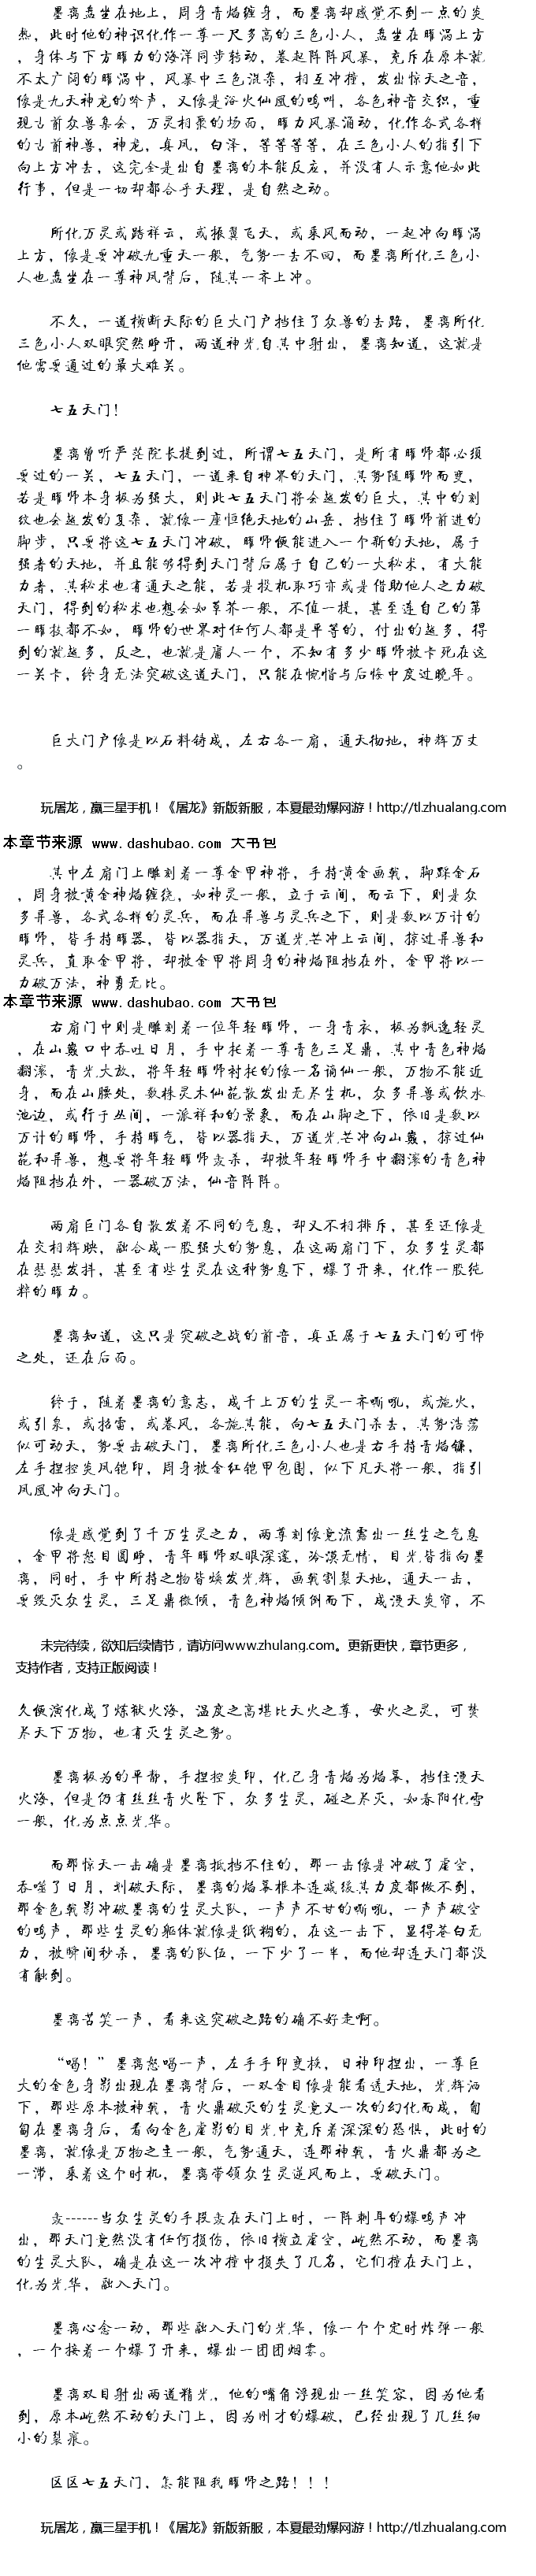 墨离盘坐在地上，周身青焰缠身，而墨离却感觉不到一点的炎
热，此时他的神识化作一尊一尺多高的三色小人，盘坐在晖涡上方
，身体与下方晖力的海洋同步转动，卷起阵阵风暴，充斥在原本就
不太广阔的晖涡中，风暴中三色混杂，相互冲撞，发出惊天之音，
像是九天神龙的吟声，又像是浴火仙凰的鸣叫，各色神音交织，重
现古前众兽集会，万灵相聚的场面，晖力风暴涌动，化作各式各样
的古前神兽，神龙，真凤，白泽，等等等等，在三色小人的指引下
向上方冲去，这完全是出自墨离的本能反应，并没有人示意他如此
行事，但是一切却都合乎天理，是自然之动。
所化万灵或踏祥云，或振翼飞天，或乘风而动，一起冲向晖涡
上方，像是要冲破九重天一般，气势一去不回，而墨离所化三色小
人也盘坐在一尊神凤背后，随其一齐上冲。
不久，一道横断天际的巨大门户挡住了众兽的去路，墨离所化
三色小人双眼突然睁开，两道神光自其中射出，墨离知道，这就是
他需要通过的最大难关。
七五天门！
墨离曾听严茫院长提到过，所谓七五天门，是所有晖师都必须
要过的一关，七五天门，一道来自神界的天门，其势随晖师而变，
若是晖师本身极为强大，则此七五天门将会越发的巨大，其中的刻
纹也会越发的复杂，就像一座恒绝天地的山岳，挡住了晖师前进的
脚步，只要将这七五天门冲破，晖师便能进入一个新的天地，属于
强者的天地，并且能够得到天门背后属于自己的一大秘术，有大能
力者，其秘术也有通天之能，若是投机取巧亦或是借助他人之力破
天门，得到的秘术也想会如草芥一般，不值一提，甚至连自己的第
一晖技都不如，晖师的世界对任何人都是平等的，付出的越多，得
到的就越多，反之，也就是庸人一个，不知有多少晖师被卡死在这
一关卡，终身无法突破这道天门，只能在惋惜与后悔中度过晚年。
巨大门户像是以石料铸成，左右各一扇，通天彻地，神辉万丈
。
玩屠龙，赢三星手机！《屠龙》新版新服，本夏最劲爆网游！http://tl.zhualang.com
本章节来源 www.dashubao.com 大书包
其中左扇门上雕刻着一尊金甲神将，手持黄金画戟，脚踩金石
，周身被黄金神焰缠绕，如神灵一般，立于云间，而云下，则是众
多异兽，各式各样的灵兵，而在异兽与灵兵之下，则是数以万计的
晖师，皆手持晖器，皆以器指天，万道光芒冲上云间，掠过异兽和
灵兵，直取金甲将，却被金甲将周身的神焰阻挡在外，金甲将以一
力破万法，神勇无比。
本章节来源 www.dashubao.com 大书包
右扇门中则是雕刻着一位年轻晖师，一身青衣，极为飘逸轻灵
，在山巅口中吞吐日月，手中托着一尊青色三足鼎，其中青色神焰
翻滚，青光大放，将年轻晖师衬托的像一名谪仙一般，万物不能近
身，而在山腰处，数株灵木仙葩散发出无尽生机，众多异兽或饮水
池边，或行于丛间，一派祥和的景象，而在山脚之下，依旧是数以
万计的晖师，手持晖气，皆以器指天，万道光芒冲向山巅，掠过仙
葩和异兽，想要将年轻晖师轰杀，却被年轻晖师手中翻滚的青色神
焰阻挡在外，一器破万法，仙音阵阵。
两扇巨门各自散发着不同的气息，却又不相排斥，甚至还像是
在交相辉映，融合成一股强大的势息，在这两扇门下，众多生灵都
在瑟瑟发抖，甚至有些生灵在这种势息下，爆了开来，化作一股纯
粹的晖力。
墨离知道，这只是突破之战的前音，真正属于七五天门的可怖
之处，还在后面。
终于，随着墨离的意志，成千上万的生灵一齐嘶吼，或施火，
或引泉，或招雷，或卷风，各施其能，向七五天门杀去，其势浩荡
似可动天，势要击破天门，墨离所化三色小人也是右手持青焰镰，
左手捏控炎凤铠印，周身被金红铠甲包围，似下凡天将一般，指引
凤凰冲向天门。
像是感觉到了千万生灵之力，两尊刻像竟流露出一丝生之气息
，金甲将怒目圆睁，青年晖师双眼深邃，冷漠无情，目光皆指向墨
离，同时，手中所持之物皆焕发光辉，画戟割裂天地，通天一击，
要毁灭众生灵，三足鼎微倾，青色神焰倾倒而下，成漫天炎帘，不
未完待续，欲知后续情节，请访问www.zhulang.com。更新更快，章节更多，
支持作者，支持正版阅读！
久便演化成了炼狱火海，温度之高堪比天火之尊，母火之灵，可焚
尽天下万物，也有灭生灵之势。
墨离极为的平静，手捏控炎印，化己身青焰为焰幕，挡住漫天
火海，但是仍有丝丝青火坠下，众多生灵，碰之尽灭，如春阳化雪
一般，化为点点光华。
而那惊天一击确是墨离抵挡不住的，那一击像是冲破了虚空，
吞噬了日月，划破天际，墨离的焰幕根本连减缓其力度都做不到，
那金色戟影冲破墨离的生灵大队，一声声不甘的嘶吼，一声声破空
的鸣声，那些生灵的躯体就像是纸糊的，在这一击下，显得苍白无
力，被瞬间秒杀，墨离的队伍，一下少了一半，而他却连天门都没
有触到。
墨离苦笑一声，看来这突破之路的确不好走啊。
“喝！”墨离怒喝一声，左手手印变换，日神印捏出，一尊巨
大的金色身影出现在墨离背后，一双金目像是能看透天地，光辉洒
下，那些原本被神戟，青火鼎破灭的生灵竟又一次的幻化而成，匍
匐在墨离身后，看向金色虚影的目光中充斥着深深的恐惧，此时的
墨离，就像是万物之主一般，气势通天，连那神戟，青火鼎都为之
一滞，乘着这个时机，墨离带领众生灵逆风而上，要破天门。
轰------当众生灵的手段轰在天门上时，一阵刺耳的爆鸣声冲
出，那天门竟然没有任何损伤，依旧横立虚空，屹然不动，而墨离
的生灵大队，确是在这一次冲撞中损失了几名，它们撞在天门上，
化为光华，融入天门。
墨离心念一动，那些融入天门的光华，像一个个定时炸弹一般
，一个接着一个爆了开来，爆出一团团烟雾。
墨离双目射出两道精光，他的嘴角浮现出一丝笑容，因为他看
到，原本屹然不动的天门上，因为刚才的爆破，已经出现了几丝细
小的裂痕。
区区七五天门，怎能阻我晖师之路！！！
玩屠龙，赢三星手机！《屠龙》新版新服，本夏最劲爆网游！http://tl.zhualang.com